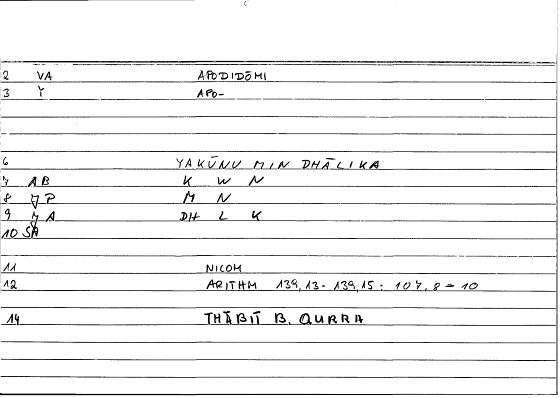 2 VA APODIDŌMI
3 Y APO-
6 YAKŪNU MIN DHĀLIKA
7 AB K W N
8 P M N
9 A DH L K
10 SA
11 NICOM
12 ARITHM 139,13-139,15: 107,8-10
14 THĀBIT B. QURRA